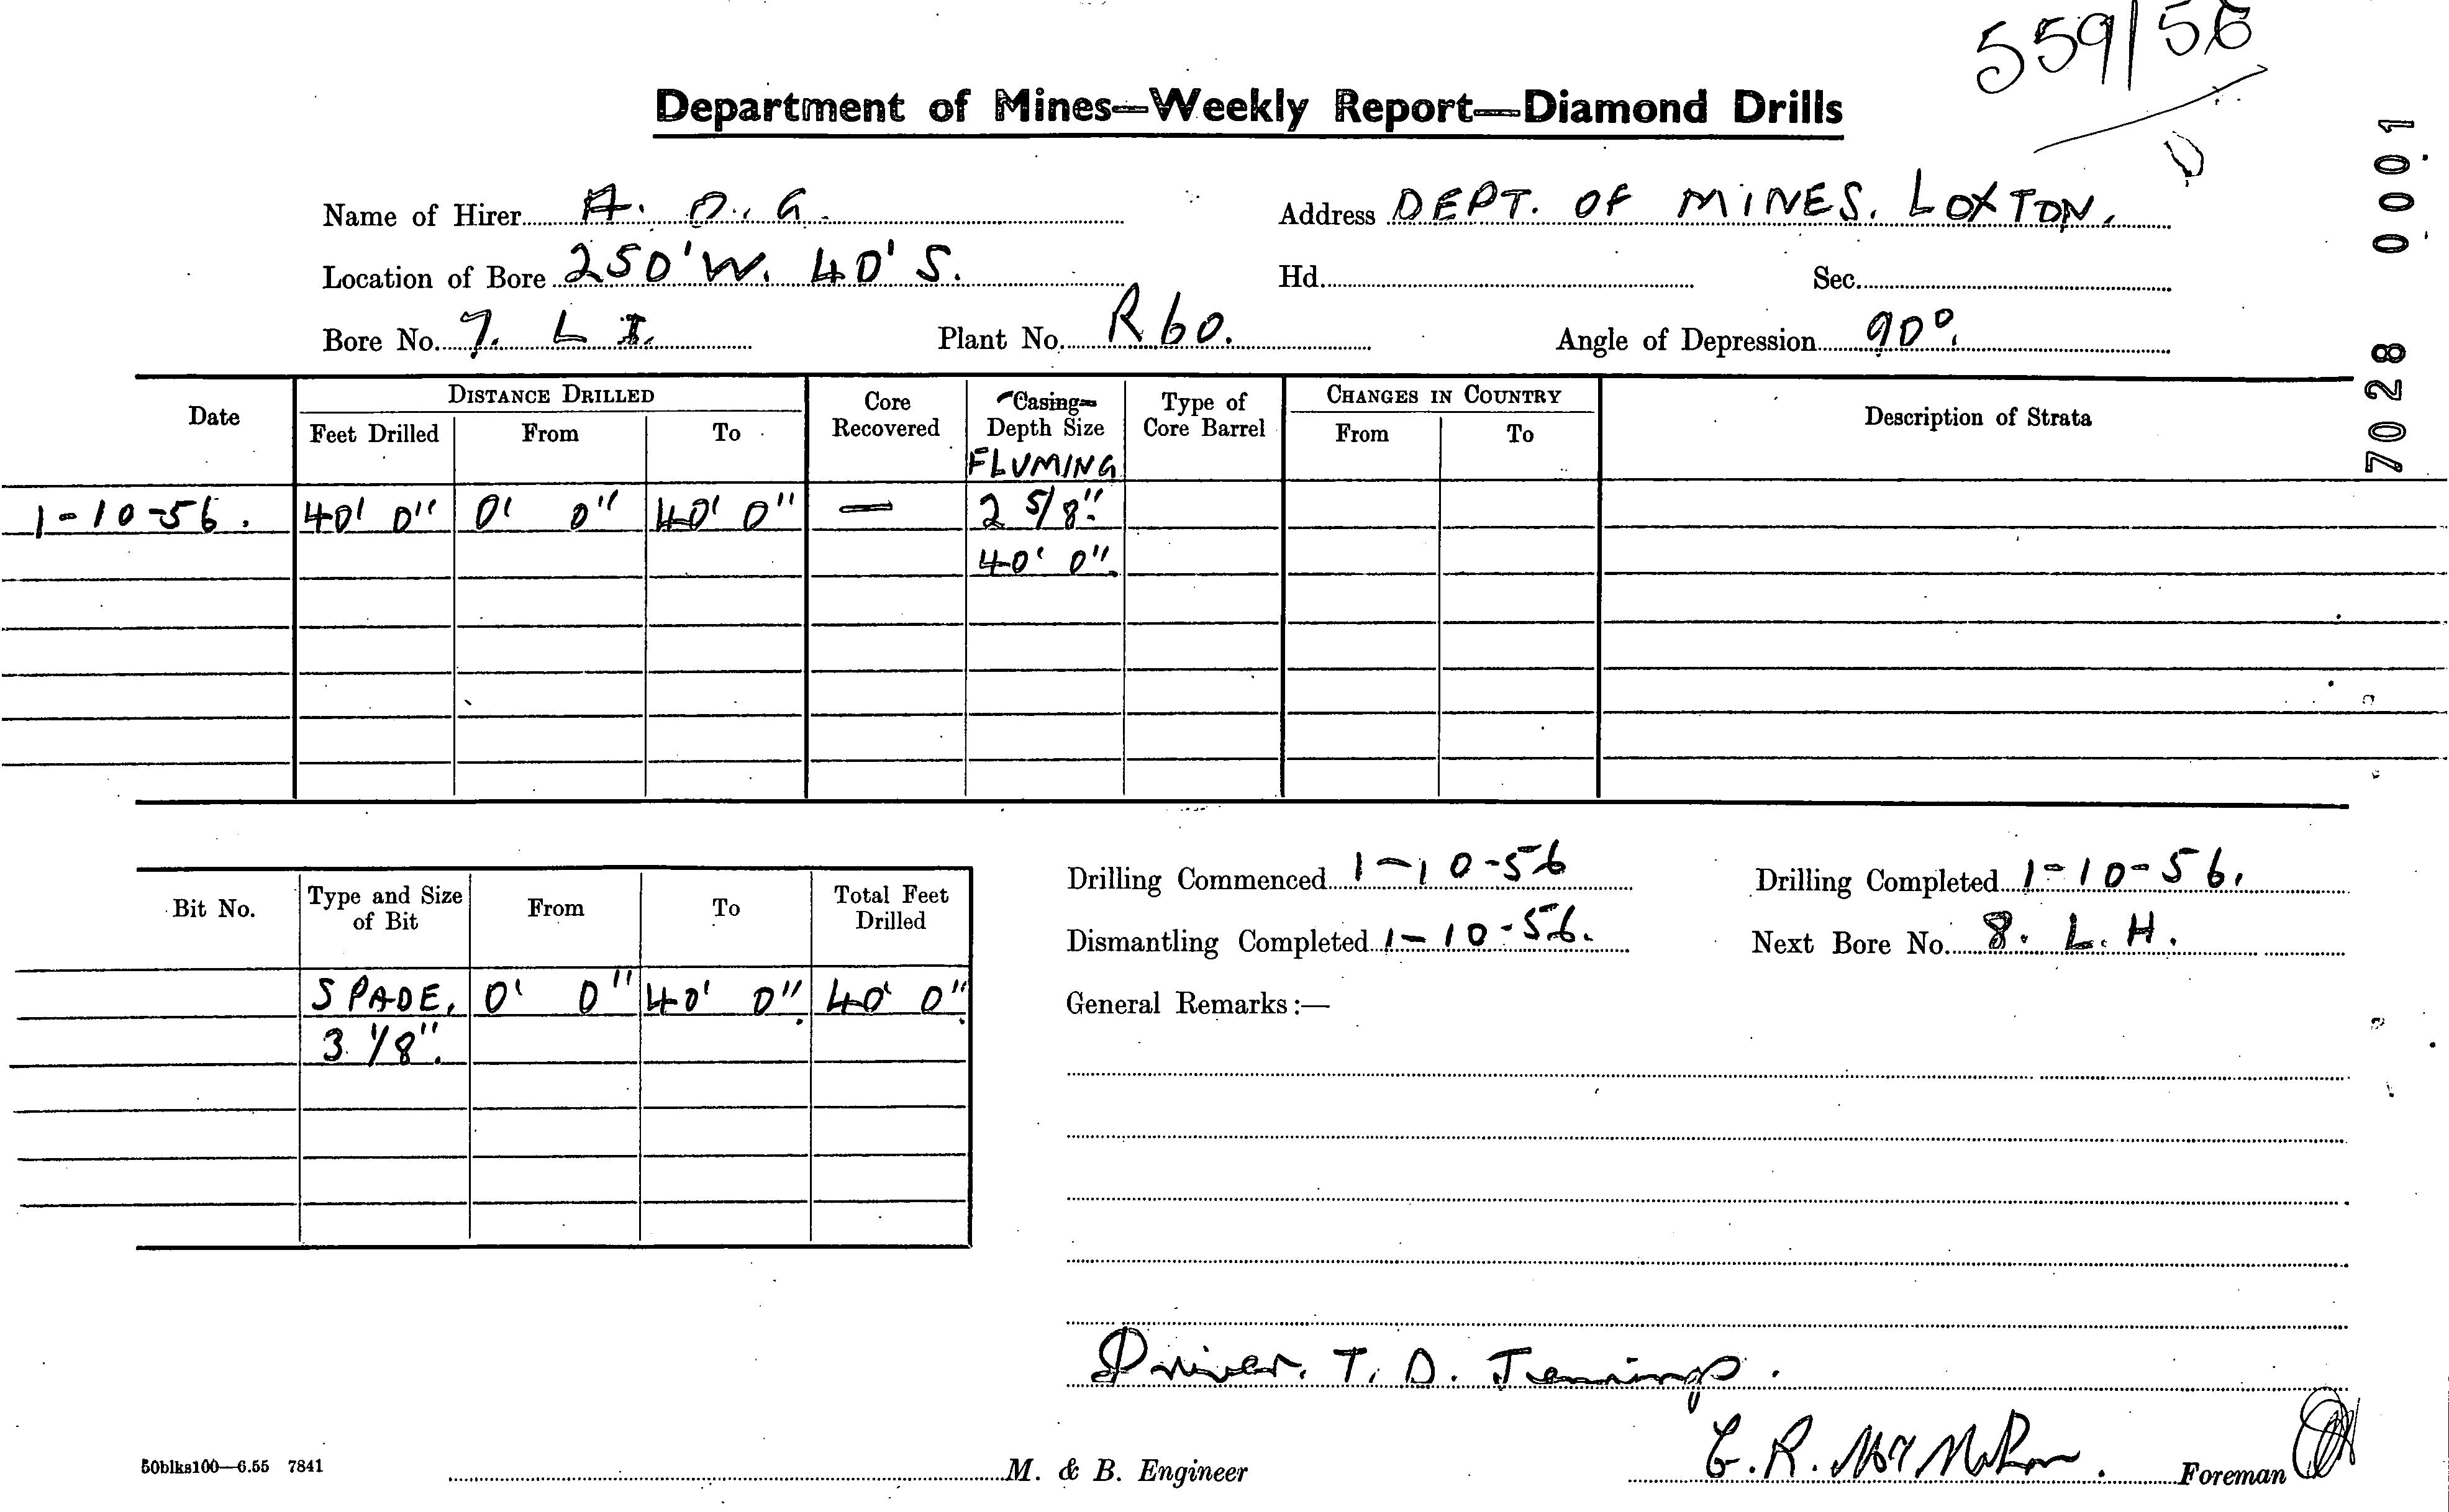 559/56
Department of Mines—Weekly Report—Diamond Drills
Name of Hirer A. O. G. Address DEPT. OF MINES. LOXTON.
Location of Bore 250' W. 40' S. Hd. Sec.
Bore No. 7. L I. Plant No. R 60. Angle of Depression 90°.
7028 0001
Date DISTANCE DRILLED Core Recovered Casing Depth Size Type of Core Barrel CHANGES IN COUNTRY Description of Strata
Feet Drilled From To FLUMING From To
1-10-56. 40' 0" 0' 0" 40' 0" — 2 5/8".
40' 0".
Drilling Commenced 1-10-56 Drilling Completed 1-10-56.
Dismantling Completed 1-10-56. Next Bore No. 8. L. H.
General Remarks:—
Bit No. Type and Size of Bit From To Total Feet Drilled
SPADE. 0' 0" 40' 0". 40' 0".
3 1/8".
Driver. T. D. Jennings.
50blks100—6.55 7841 M. & B. Engineer Foreman